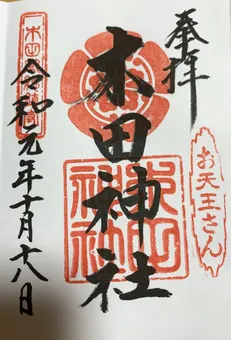 奉拝
お天王さん
木田神社
木田
神社
令和元年十月十八日